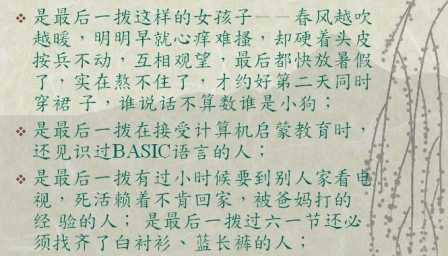 是最后一拨这样的女孩子——春风越吹
越暖，明明早就心痒难搔，却硬着头皮
按兵不动，互相观望，最后都快放暑假
了，实在熬不住了，才约好第二天同时
穿裙 子，谁说话不算数谁是小狗；
是最后一拨在接受计算机启蒙教育时，
还见识过BASIC语言的人；
是最后一拨有过小时候要到别人家看电
视，死活赖着不肯回家，被爸妈打的
经 验的人； 是最后一拨过六一节还必
须找齐了白衬衫、蓝长裤的人；